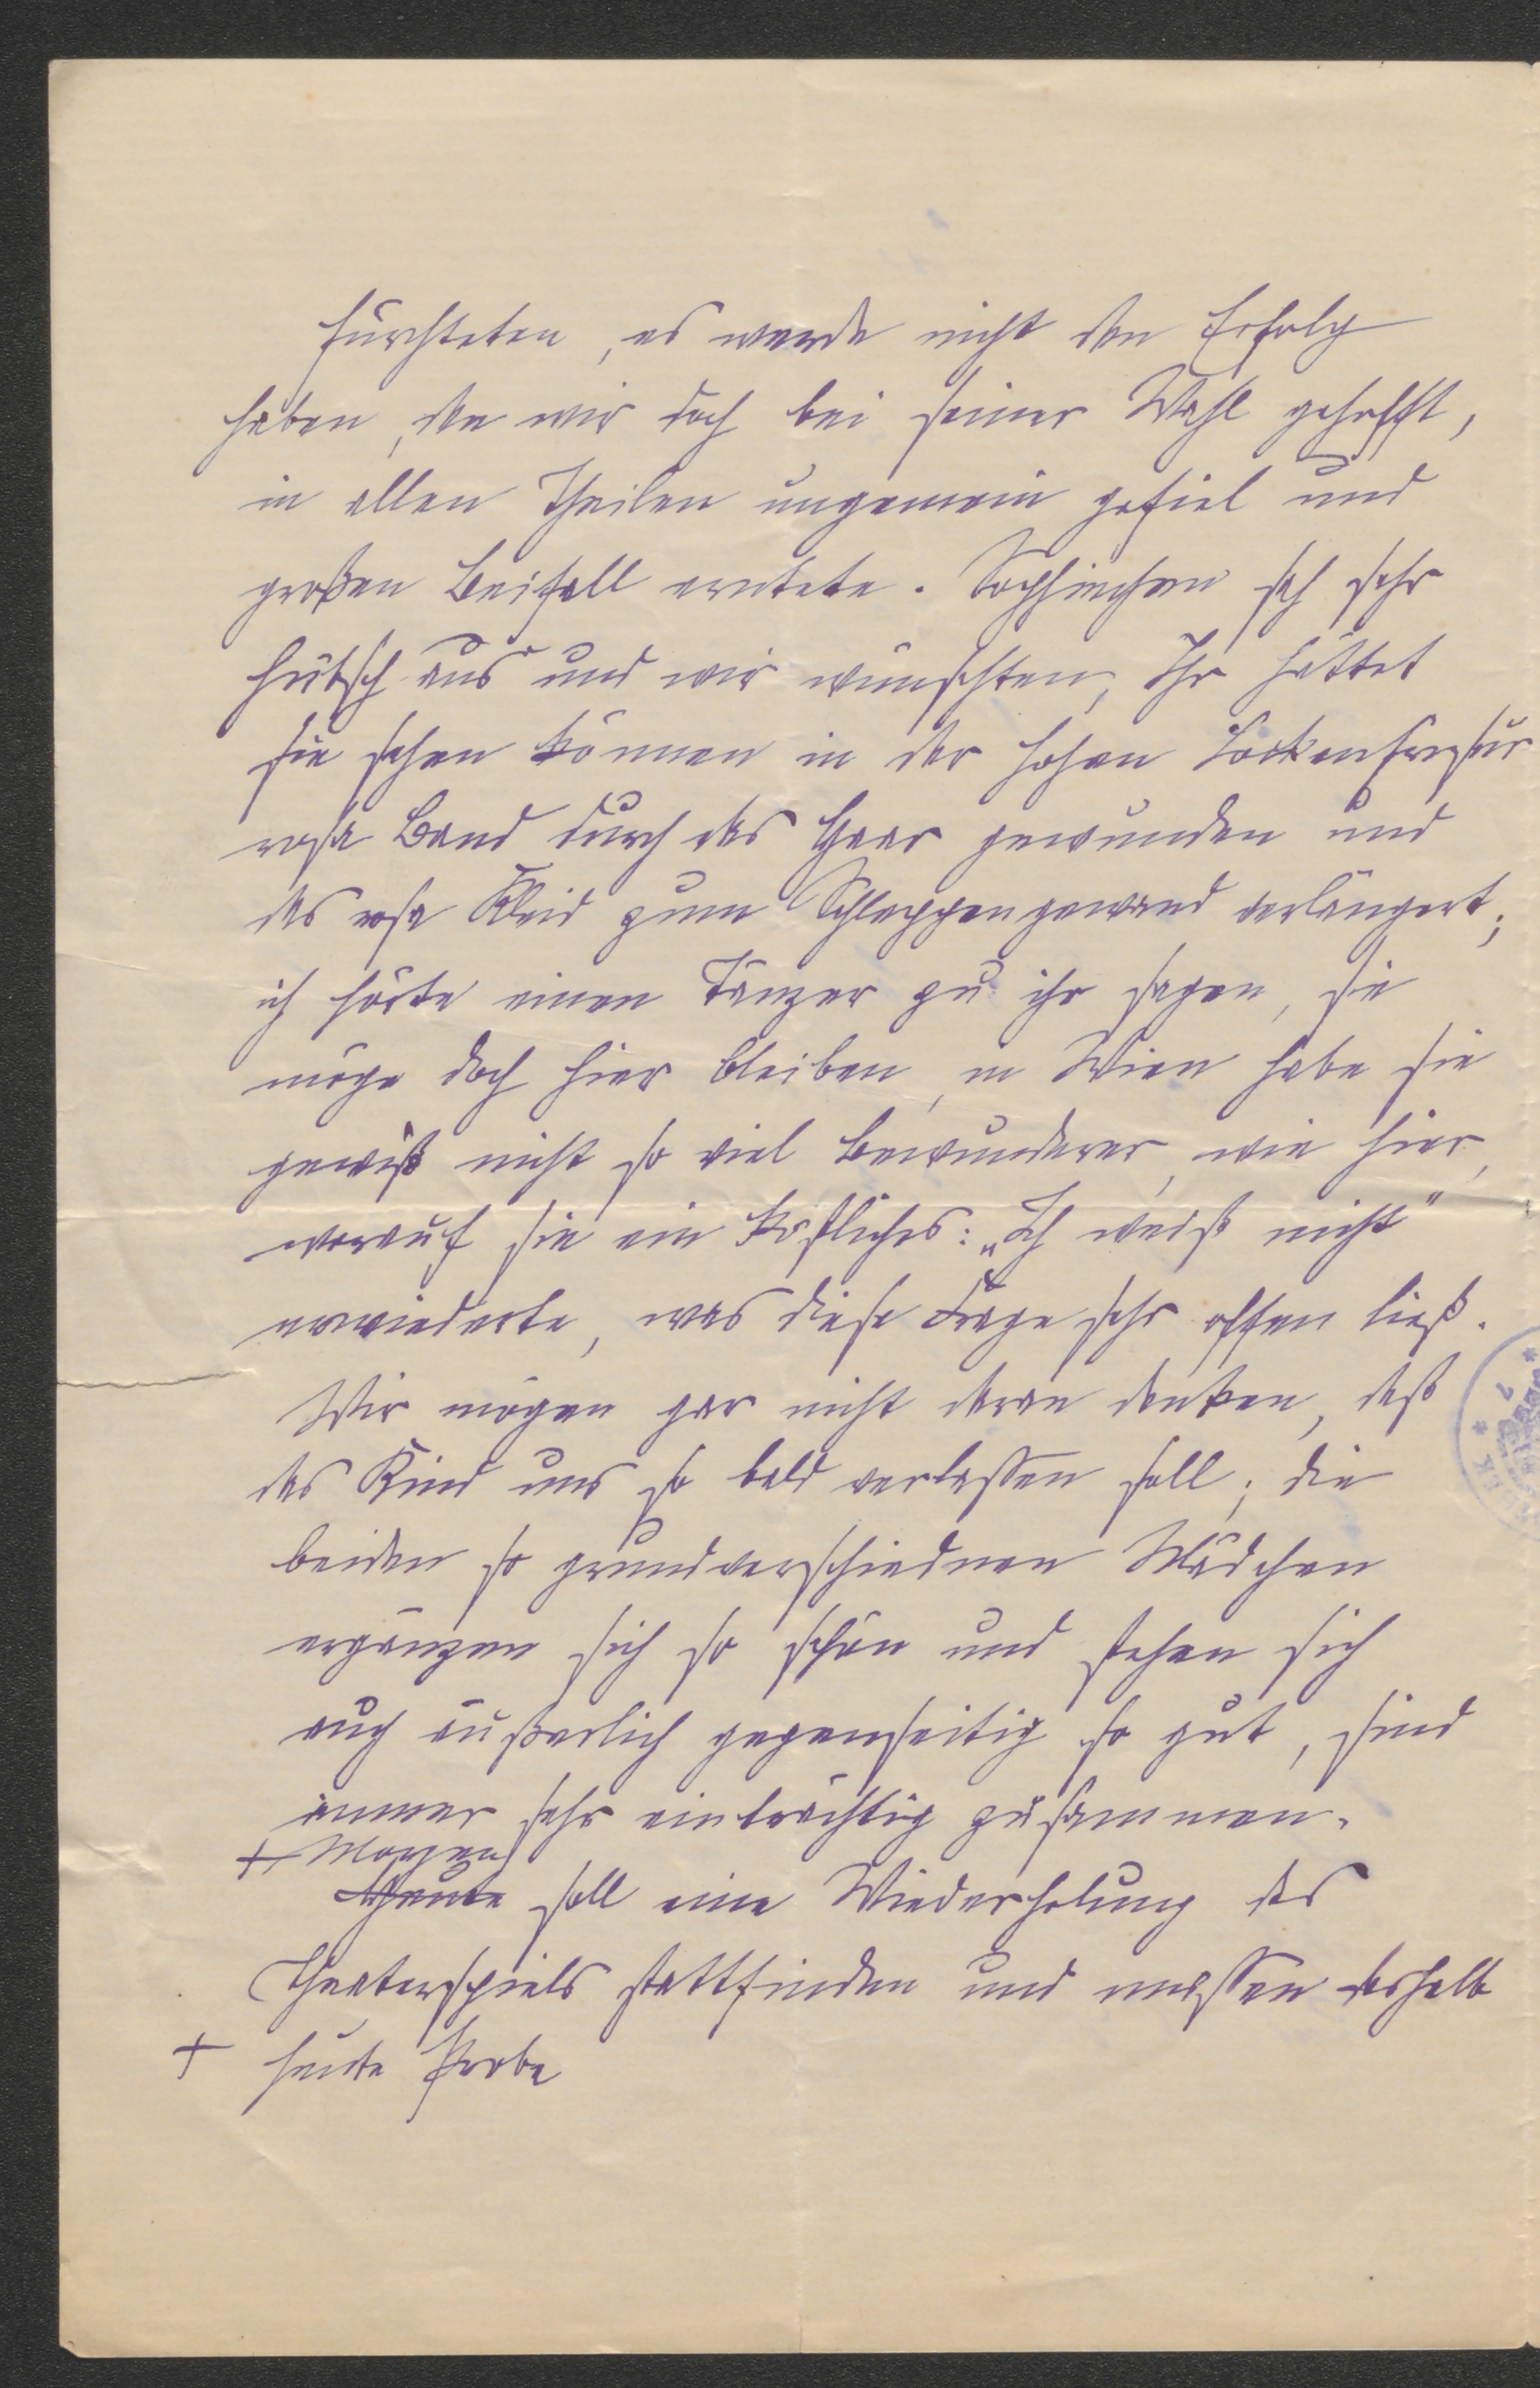 fürchteten, es werde nicht den Erfolg
haben, den wir doch bei seiner Wahl gehofft,
in allen Theilen ungemein gefiel und
großen Beifall erntete. Sophiechen sah sehr
hübsch aus und wir wünschten, Ihr hättet
sie sehen können in der hohen Lockenfrisur
rosa Band durch das Haar gewunden und
das rosa Kleid zum Schleppengewand verlängert;
ich hörte einen Tänzer zu ihr sagen, sie
möge doch hier bleiben, in Wien habe sie
gewiß nicht so viel Bewunderer, wie hier,
worauf sie ein köstliches: „Ich weiß nicht"
erwiederte, was diese Frage sehr offen ließ.
Wir mögen gar nicht daran denken, daß
das Kind uns so bald verlassen soll; die
beiden so grundverschiednen Mädchen
ergänzen sich so schön und stehen sich
auch äußerlich gegenseitig so gut, sind
immer sehr einträchtig zusammen.
+ Morgen
Heute soll eine Wiederholung des
Theaterspiels stattfinden und müssen deshalb
+ heute Probe